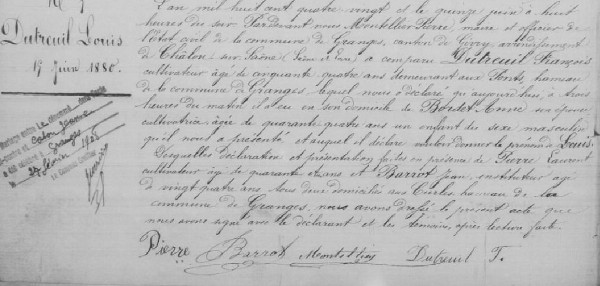 N° 7
Dutreuil Louis
15 Juin 1880.
L'an mil huit cent quatre vingt et le quinze juin à huit
heures du soir Pardevant nous Montillier Pierre, maire et officier de
l'état civil de la commune de Granges, canton de Givry, arrondissement
de Chalon sur Saône (Saône et Loire) a comparu Dutreuil François
cultivateur âgé de cinquante quatre ans demeurant aux Ponts, hameau
de la commune de Granges lequel nous a déclaré qu'aujourd'hui, à trois
heures du matin, il a eu en son domicile de Bordet Anne son épouse
cultivatrice, âgée de quarante quatre ans un enfant du sexe masculin
qu'il nous a présenté et auquel il déclare vouloir donner le prénom de Louis.
Lesquelles déclaration et présentation faites en présence de Pierre Laurent
cultivateur âgé de quarante ans et Barrot Jean, instituteur âgé
de vingt quatre ans, tous deux domiciliés aux Curles hameau de la
commune de Granges, nous avons dressé le présent acte que
nous avons signé avec le déclarant et les témoins, après lecture faite.
Pierre Barrot Montillier Dutreuil F.
Calon Jeanne
Granges
1925